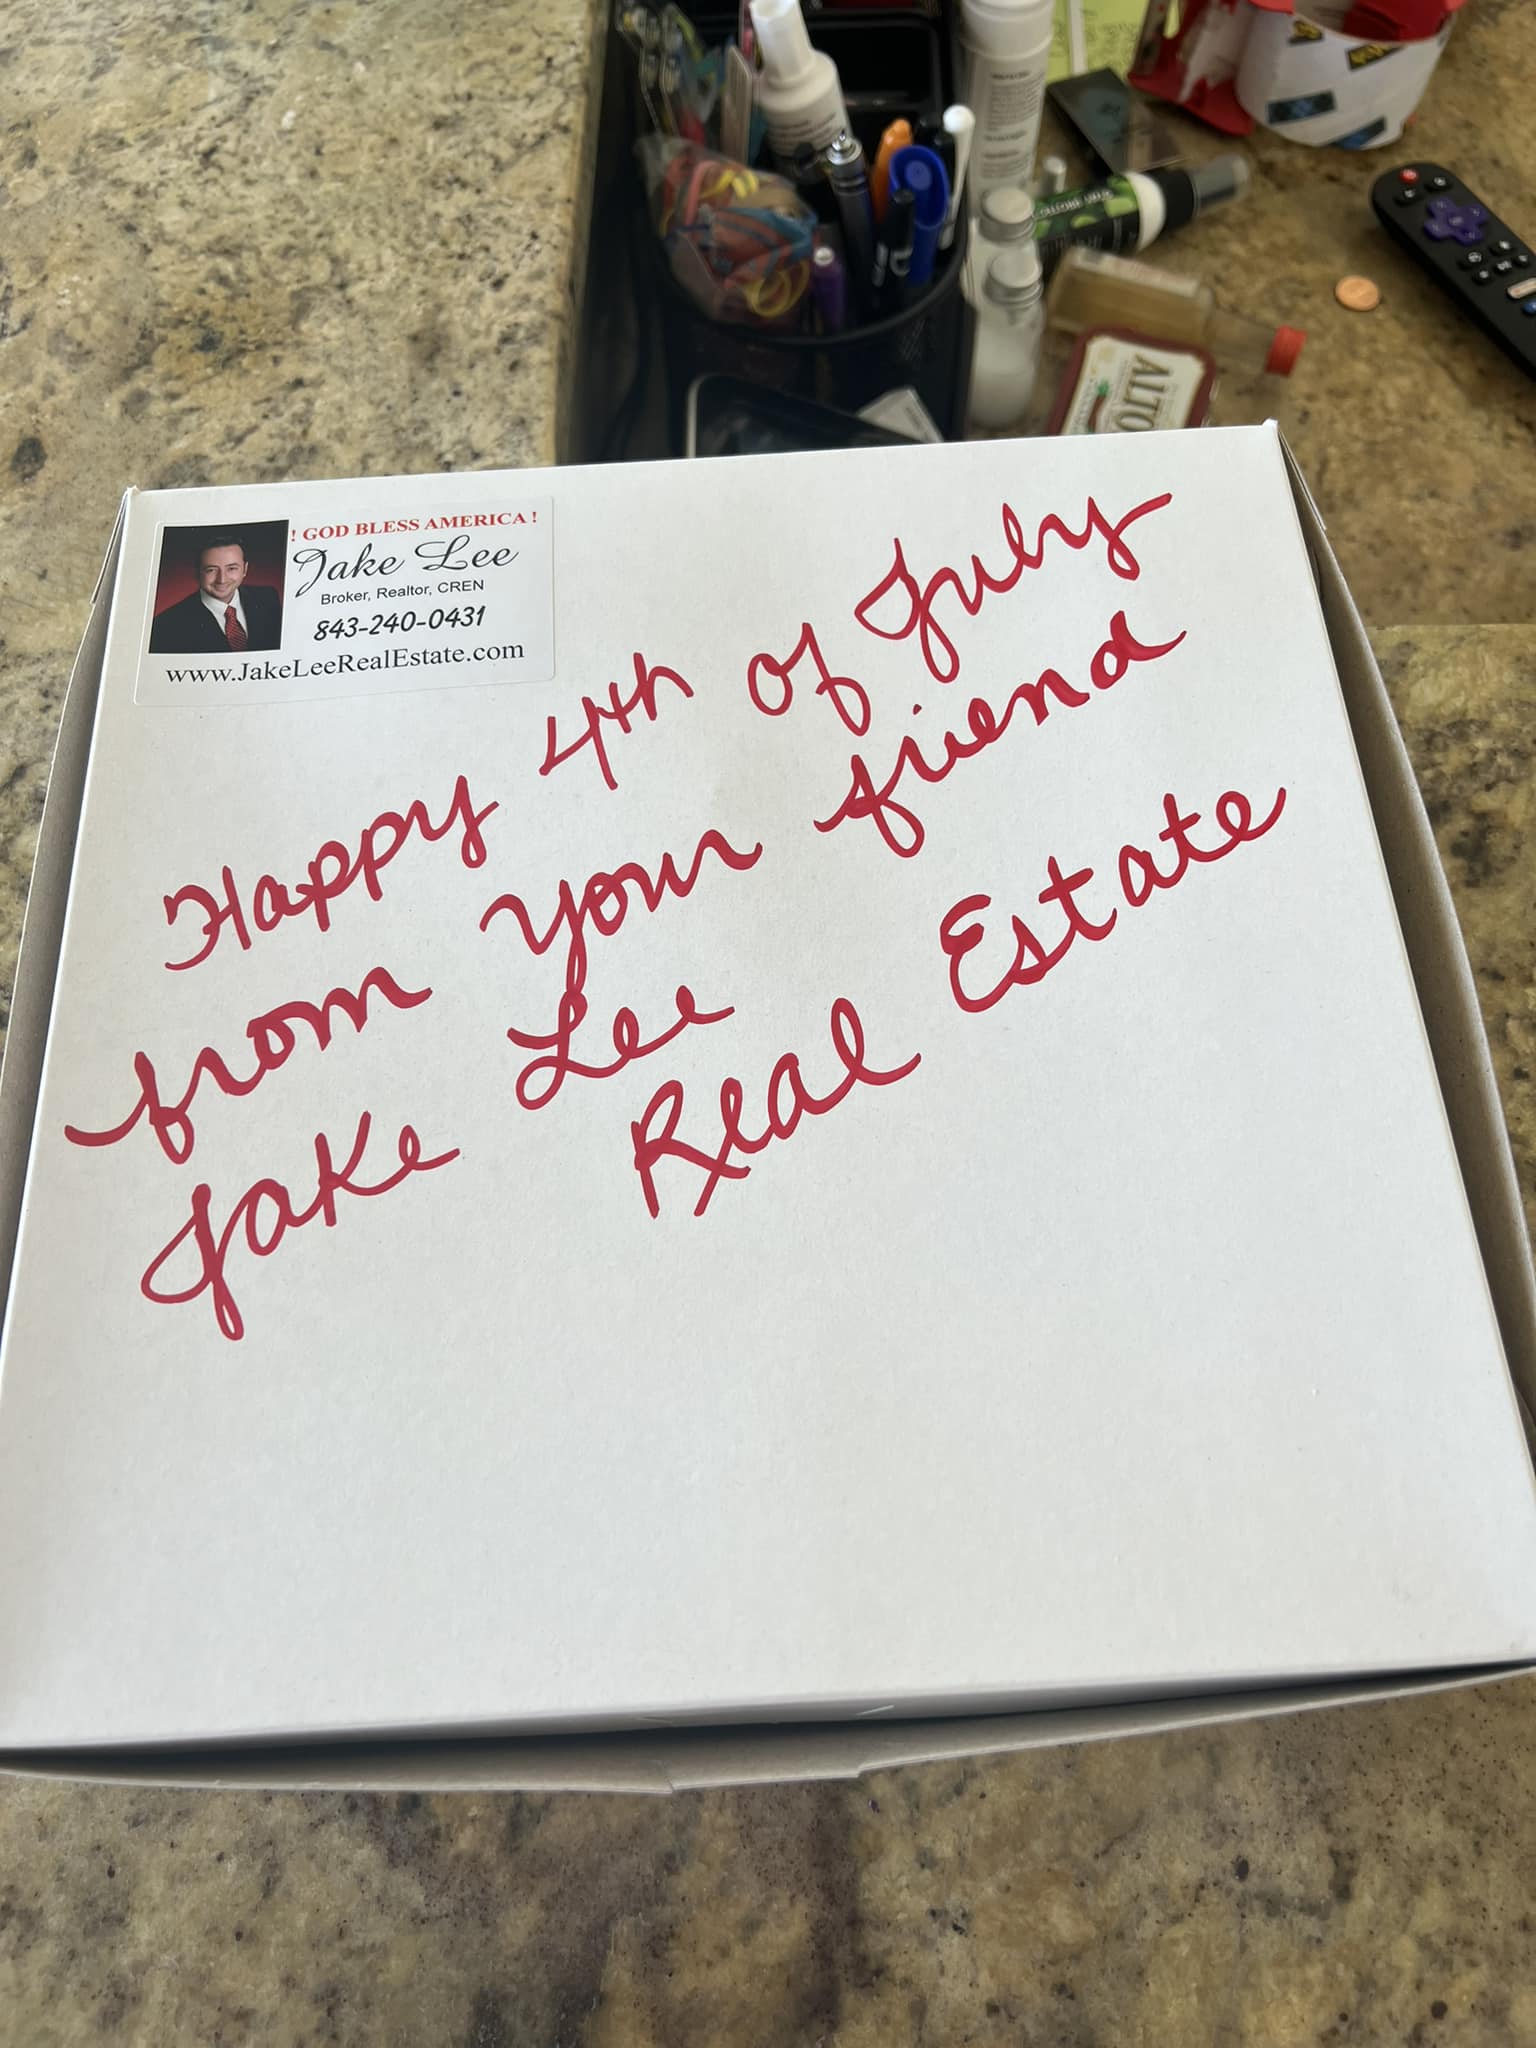 ! GOD BLESS AMERICA !
Jake Lee
Broker, Realtor, CREN
843-240-0431
www.JakeLeeRealEstate.com
Happy 4th of July
from your friend
Jake Lee
Real Estate
ALTO